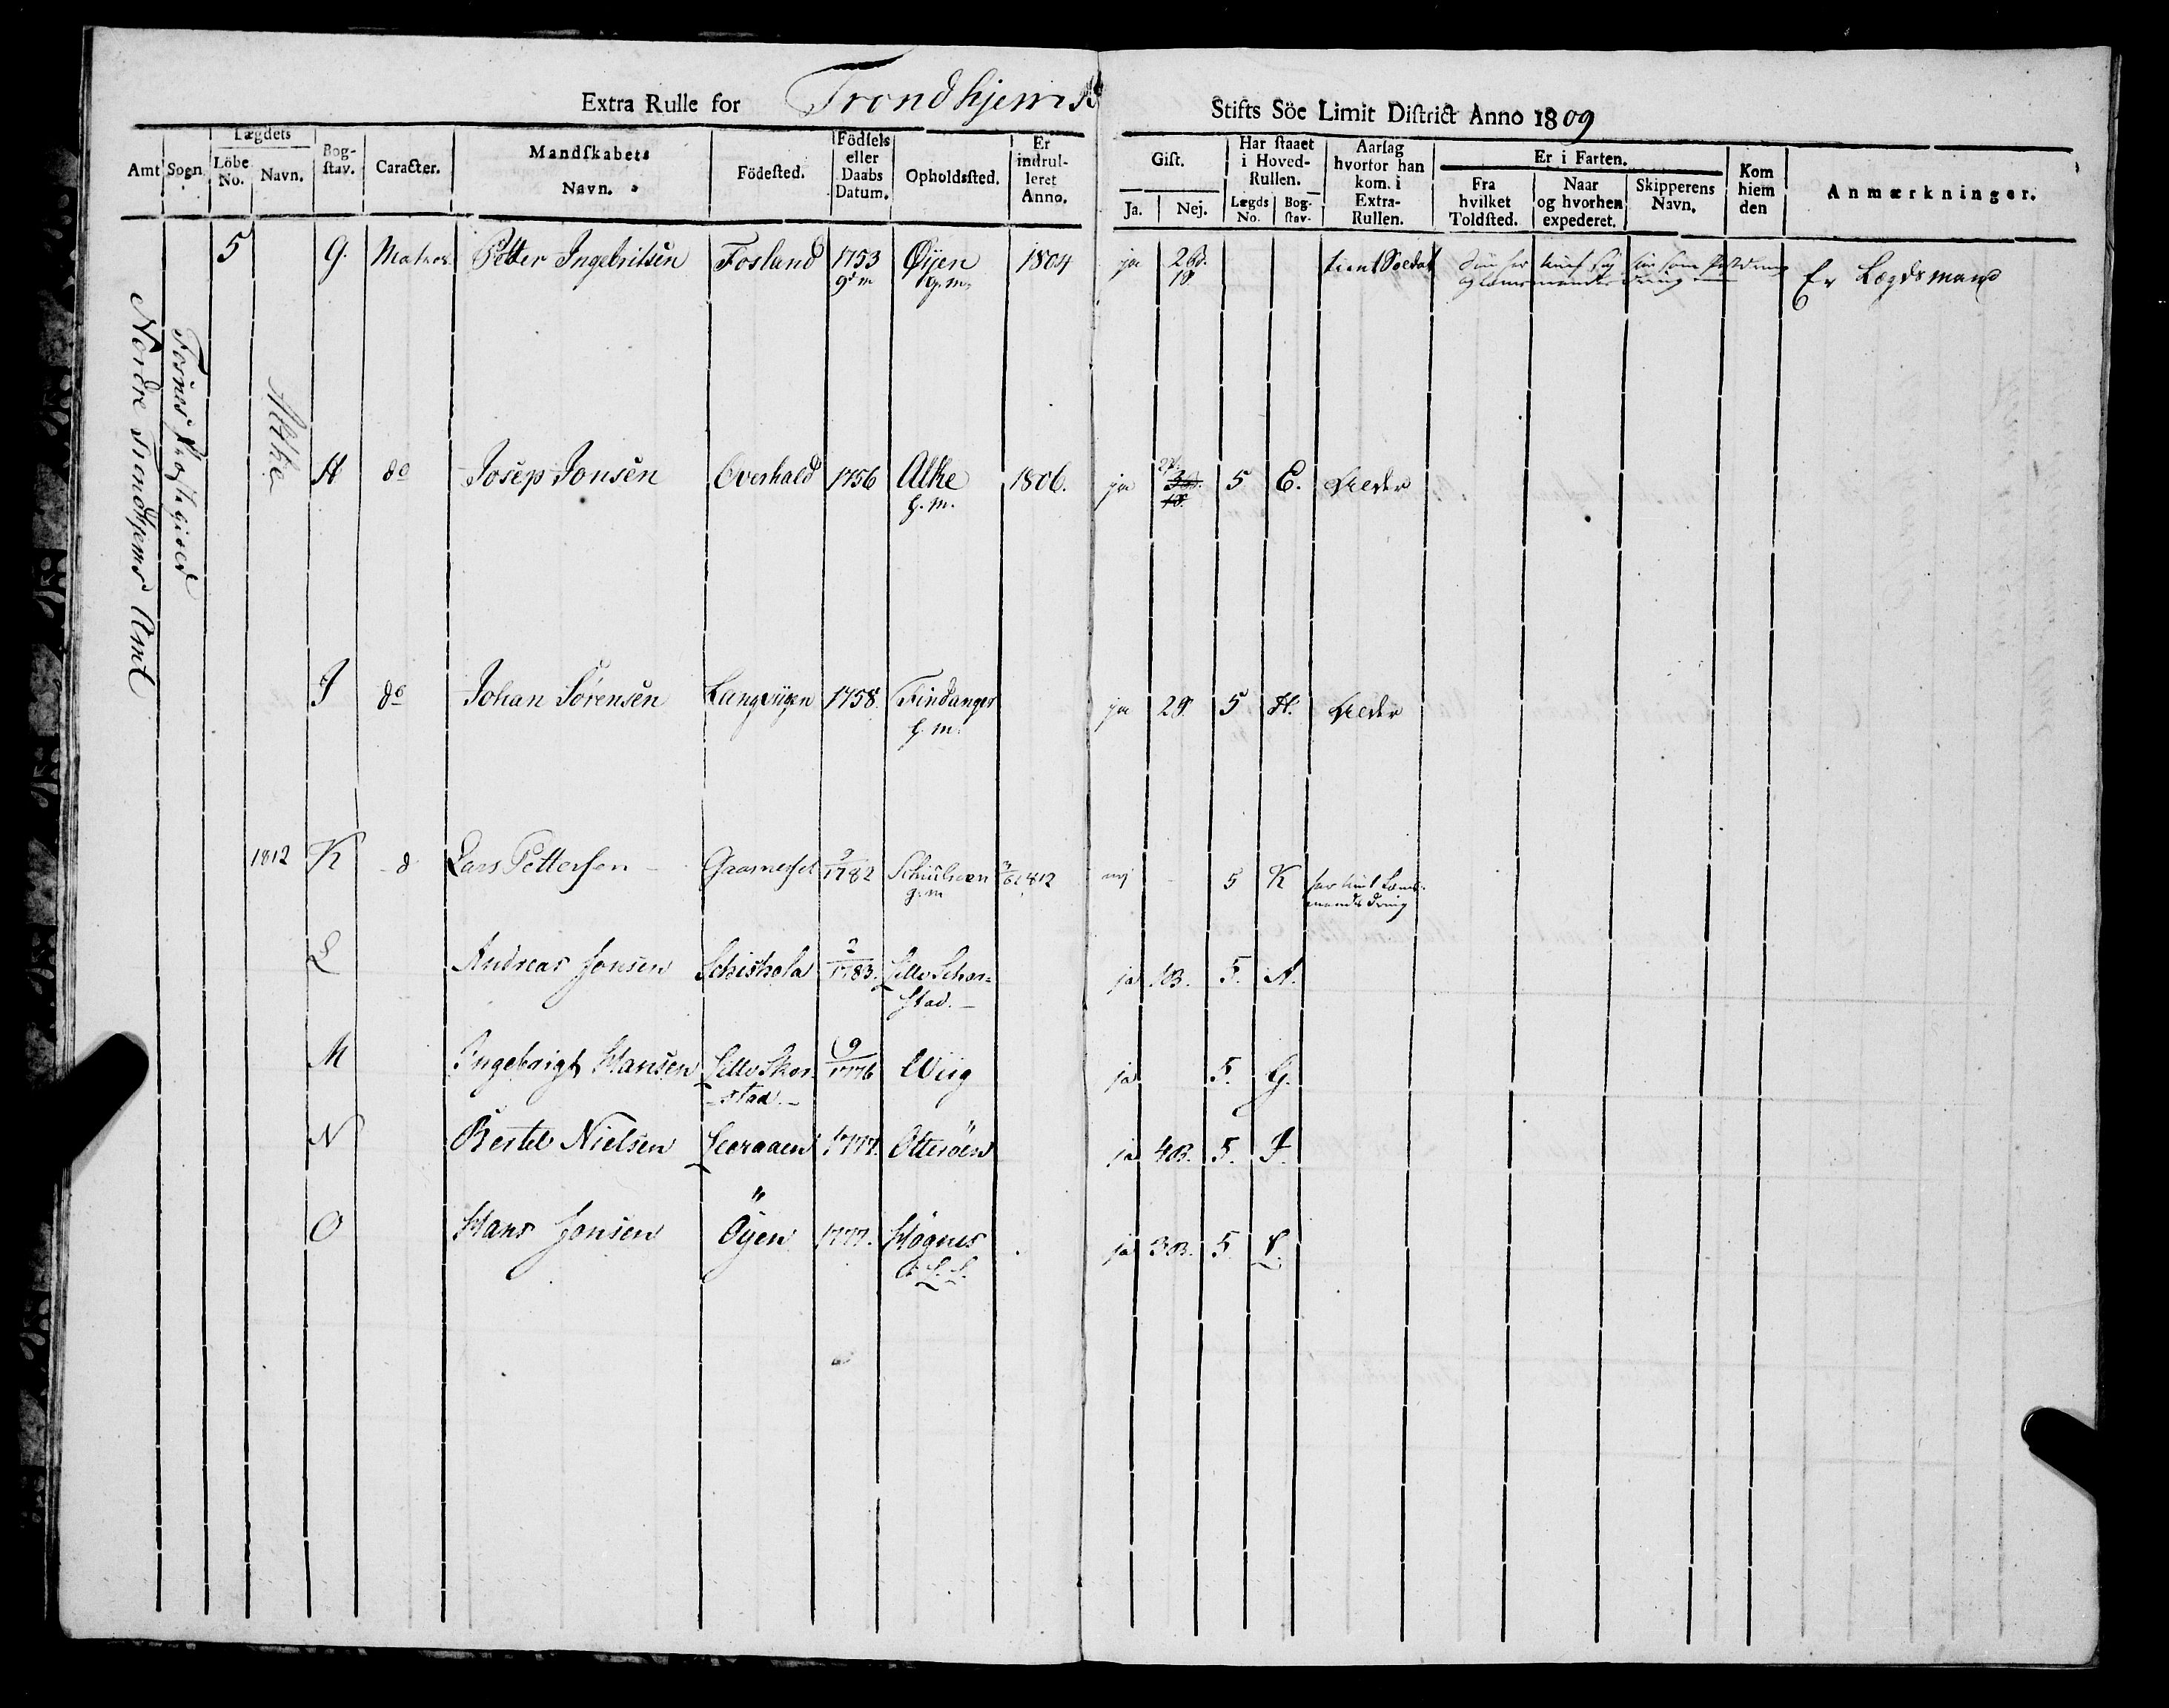 Extra Rulle for Trondhjems Stifts Söe Limit District Anno 1809
Amt Sogn Lægdets Löbe No. Navn. Bogstav. Caracter. Mandskabets Navn. Födested. Födsels eller Daabs Datum. Opholdssted. Er indrulleret Anno. Gift. Ja. Nej. Har staaet i Hoved-Rullen. Lægds No. Bogstav. Aarsag hvorfor han kom. i Extra-Rullen. Er i Farten. Fra hvilket Toldsted. Naar og hvorhen expederet. Skipperens Navn. Kom hiem den Anmærkninger.
Nordre Trondhjems Amt
Fosnes Præstegield
Alke
5 G. Matros Petter Ingebritsen Fosland 1753 Øyen 1804 ja 2 tient Soldat Er Lægdsmand
g. m.
H do Josep Jonsen Overhald 1756 Alke 1806. ja 5 E. Alder
g. m.
I do Johan Sörensen Langviigen 1758. Findanger ja 2 5 H. Alder
g. m.
1812 K d Lars Pettersen 1782 1812 nej 5 K
g. m
L Andreas Jonsen 2/1783. Lille Skor= ja 1 5. A.
stad.
M Ingebrigt Hansen Lille Skor- 9/1776 Wiig ja 5. G.
stad.
N Bertel Nielsen 1777. Otteröen ja 4 5. I.
O Hans Jonsen Öyen 1777. Högnes ja 3 5. L.